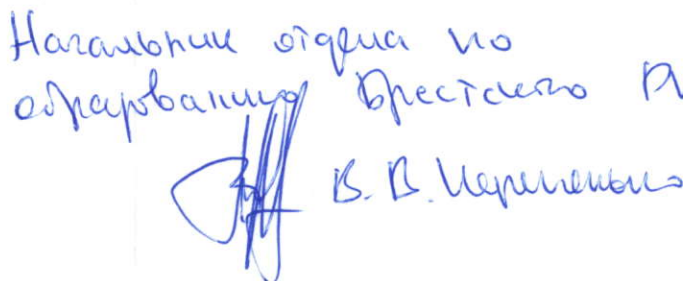 Начальник отдела по
образованию Брестского Р
В. В.